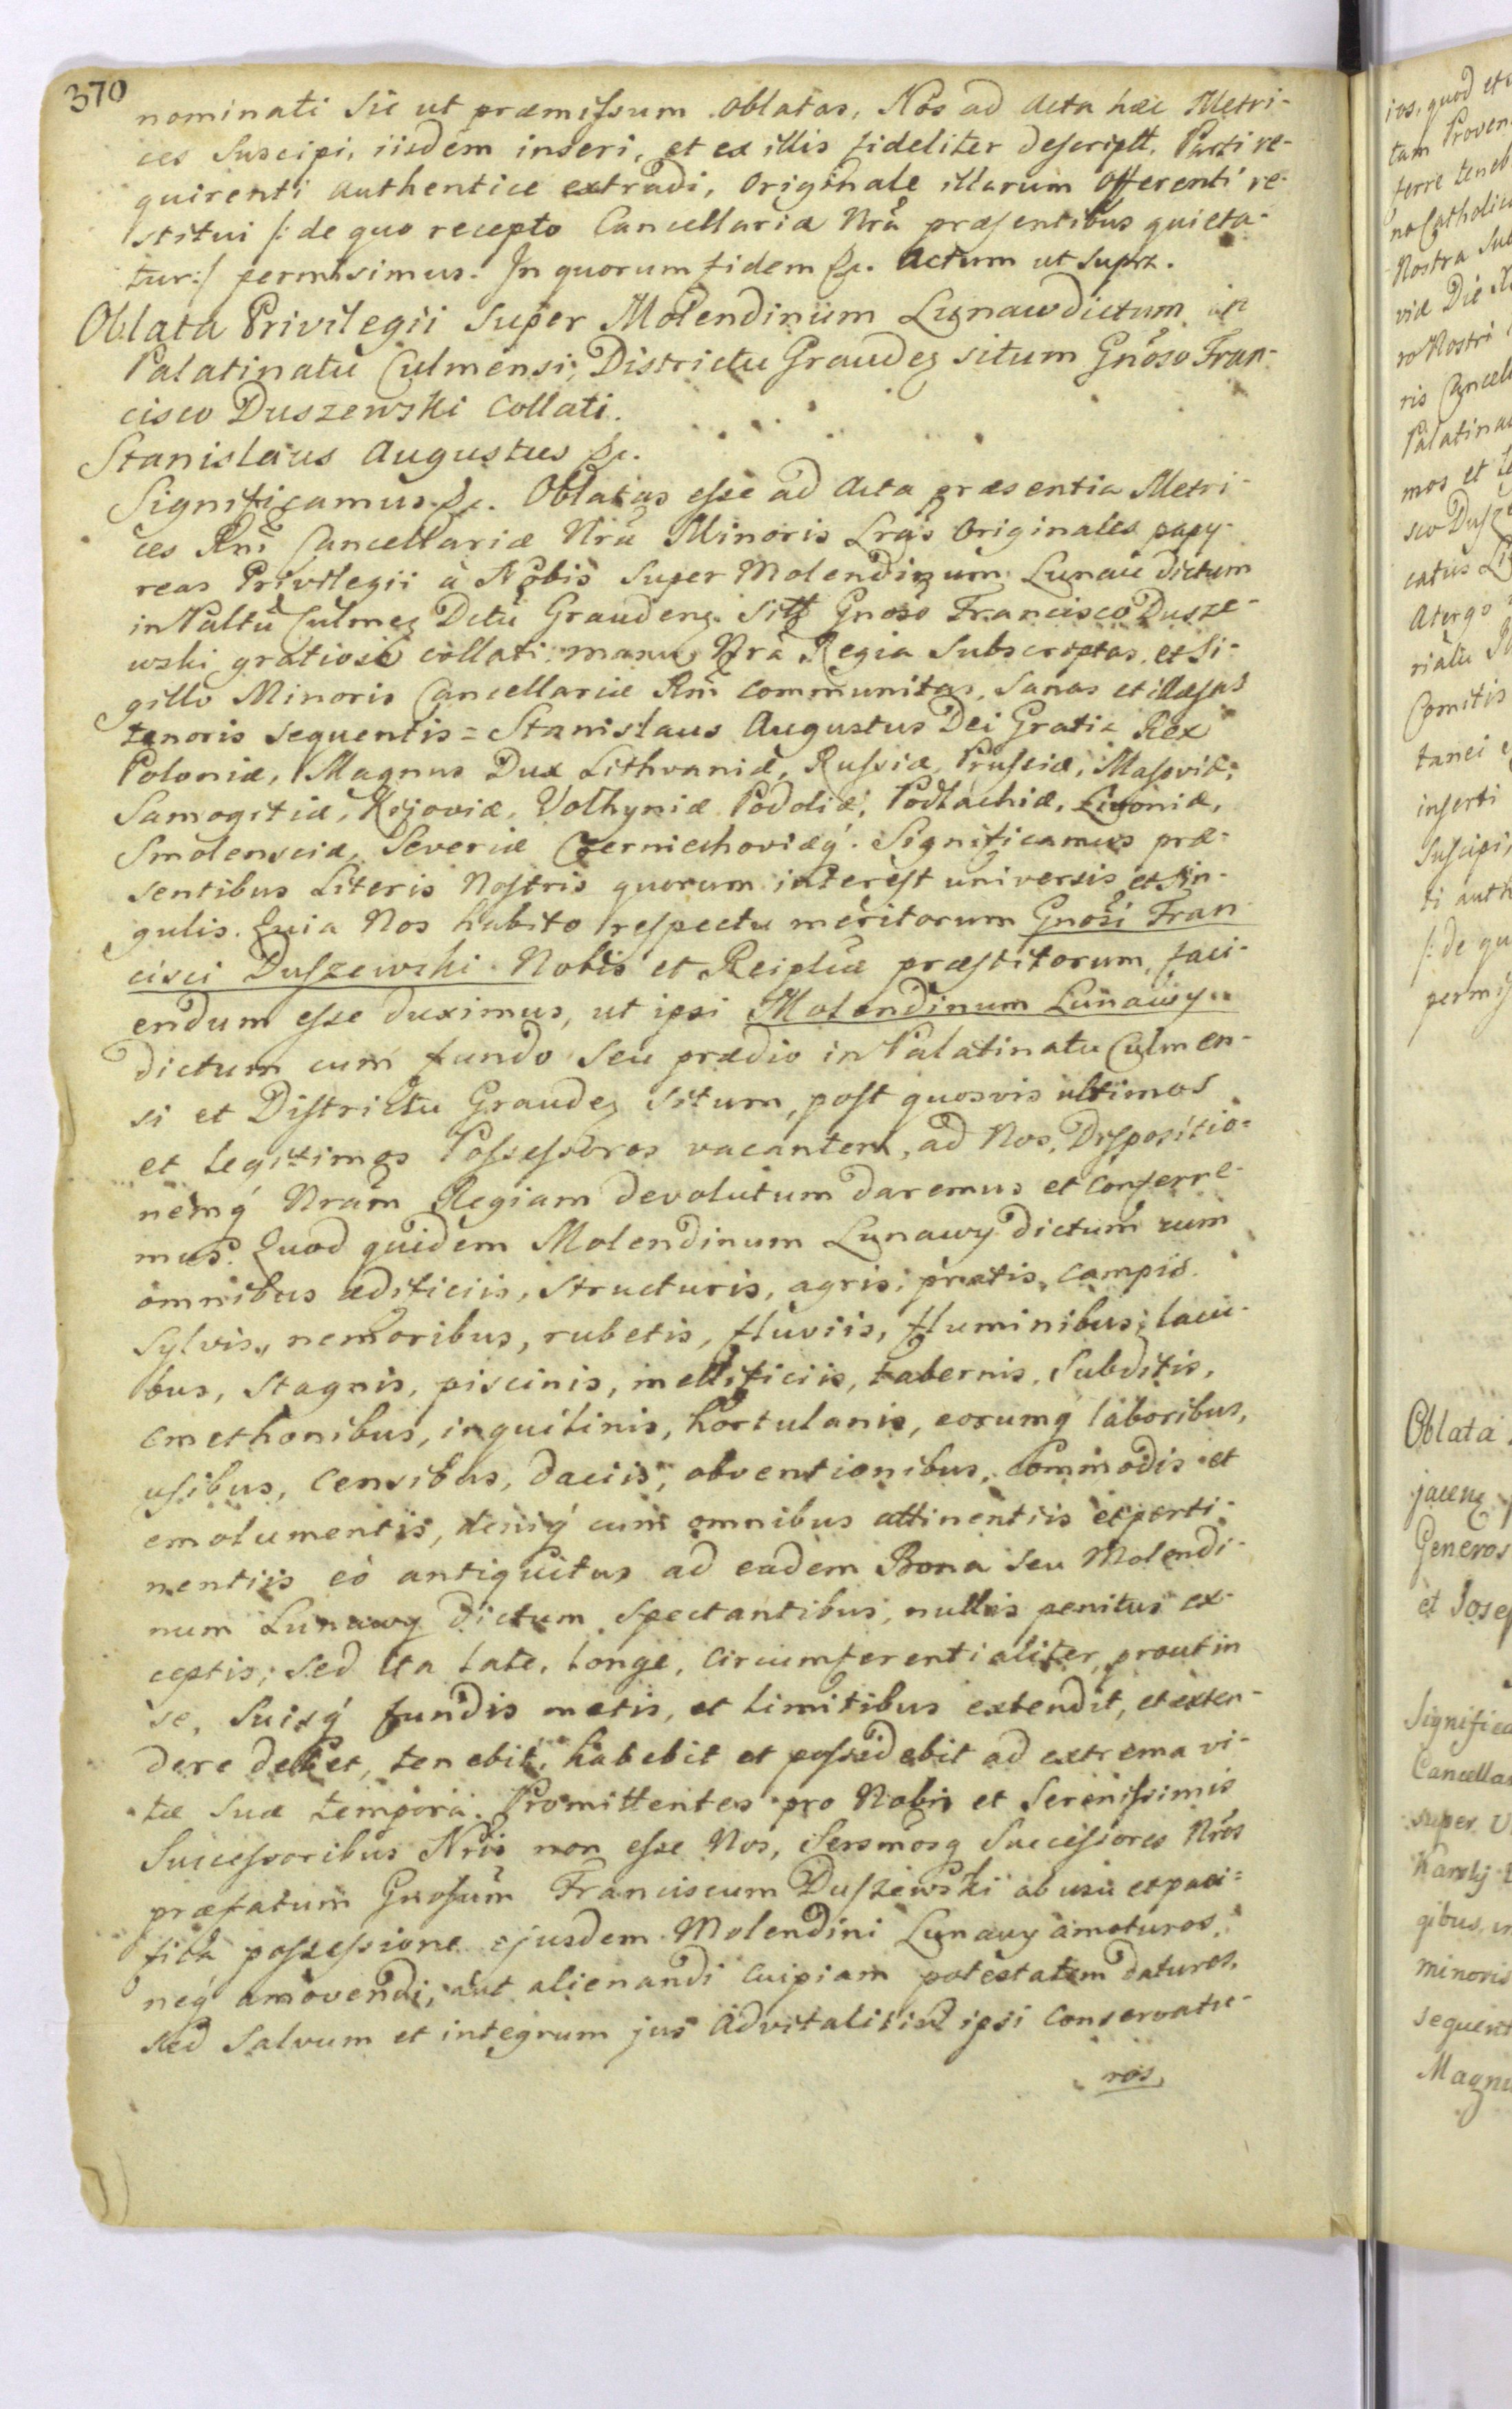 370
nominati sic ut præmissum oblatas, Nos ad Acta hæc Metri-
ces suscipi, iisdem inseri, et ex illis fideliter descriptt. Parti re-
quirenti authentice extradi, Originale illarum Offerenti re-
stitui /: de quo recepto Cancellaria Nrã præsentibus quieta-
tur :/ permisimus. In quorum fidem &c. Actum ut supra.
Oblata Privilegii super Molendinum Lunaw dictum in
Palatinatu Culmensi, Districtu Graudez situm Gnõso Fran-
cisco Duszewski collati.
Stanislaus Augustus &c.
Significamus &c. Oblatas esse ad Acta præsentia Metri-
ces Rnĩ Cancellariæ Nræ Minoris Lrãs Originales papy-
reas Privilegii à Nobis super Molendinum Lunaw dictum
in Paltũ Culmez Dctũ Graudenz. sitt Gnõso Francisco Dusze-
wski gratiose collati manu Nrã Regia subscriptas, et Si-
gillo Minoris Cancellariæ Rnĩ communitas, sanas et illæsas
tenoris sequentis = Stanislaus Augustus Dei Gratia Rex
Poloniæ, Magnus Dux Lithvaniæ, Russiæ, Prussiæ, Masoviæ,
Samogitiæ, Kijoviæ, Volhyniæ Podoliæ, Podlachiæ, Livoniæ,
Smolensciæ, Severiæ Czerniechoviæq́. Significamus præ-
sentibus Literis Nostris quorum interest universis et sin-
gulis. Quia Nos habito respectu meritorum Gnõsi Fran
cisci Duszewski Nobis et Reiplicæ præstitorum, faci-
endum esse duximus, ut ipsi Molendinum Lunawy
dictum cum fundo seu prædio in Palatinatu Culmen-
si et Districtu Graudez situm, post quosvis ultimos
et legitimos Possessores vacantem, ad Nos, Dispositio-
nemq́ Nrãm Regiam devolutum daremus et conferre-
mus. Quod quidem Molendinum Lunawy dictum cum
omnibus ædificiis, structuris, agris, pratis, campis.
sylvis, nemoribus, rubetis, fluviis, fluminibus, lacu-
bus, stagnis, piscinis, mellificiis, tabernis, subditis,
cmethonibus, inquilinis, hortulanis, eorumq́ laboribus,
usibus, censibus, daciis, obventionibus, commodis et
emolumentis, deniq́ cum omnibus attinentiis et perti-
nentiis eò antiquitus ad eadem Bona seu Molendi-
num Lunawy dictum spectantibus, nullis penitus ex-
ceptis; sed ita late, longe, circumferentialiter, prout in
se, suisq́ fundis metis, et limitibus extendit, et exten-
dere debet, tenebit, habebit et possidebit ad extrema vi-
tæ suæ tempora. Promittentes pro Nobis et Serenissimis
Successoribus Nrĩs non esse Nos, Sersmosq Successores Nrõs
præfatum Gnosũm Franciscum Duszewski ab usu et paci-
fica possessione ejusdem Molendini Lunawy amoturos,
neq́ amovendi, aut alienandi cuipiam potestatem daturos,
sed salvum et integrum jus Advitalitium ipsi conservatu-
ros,